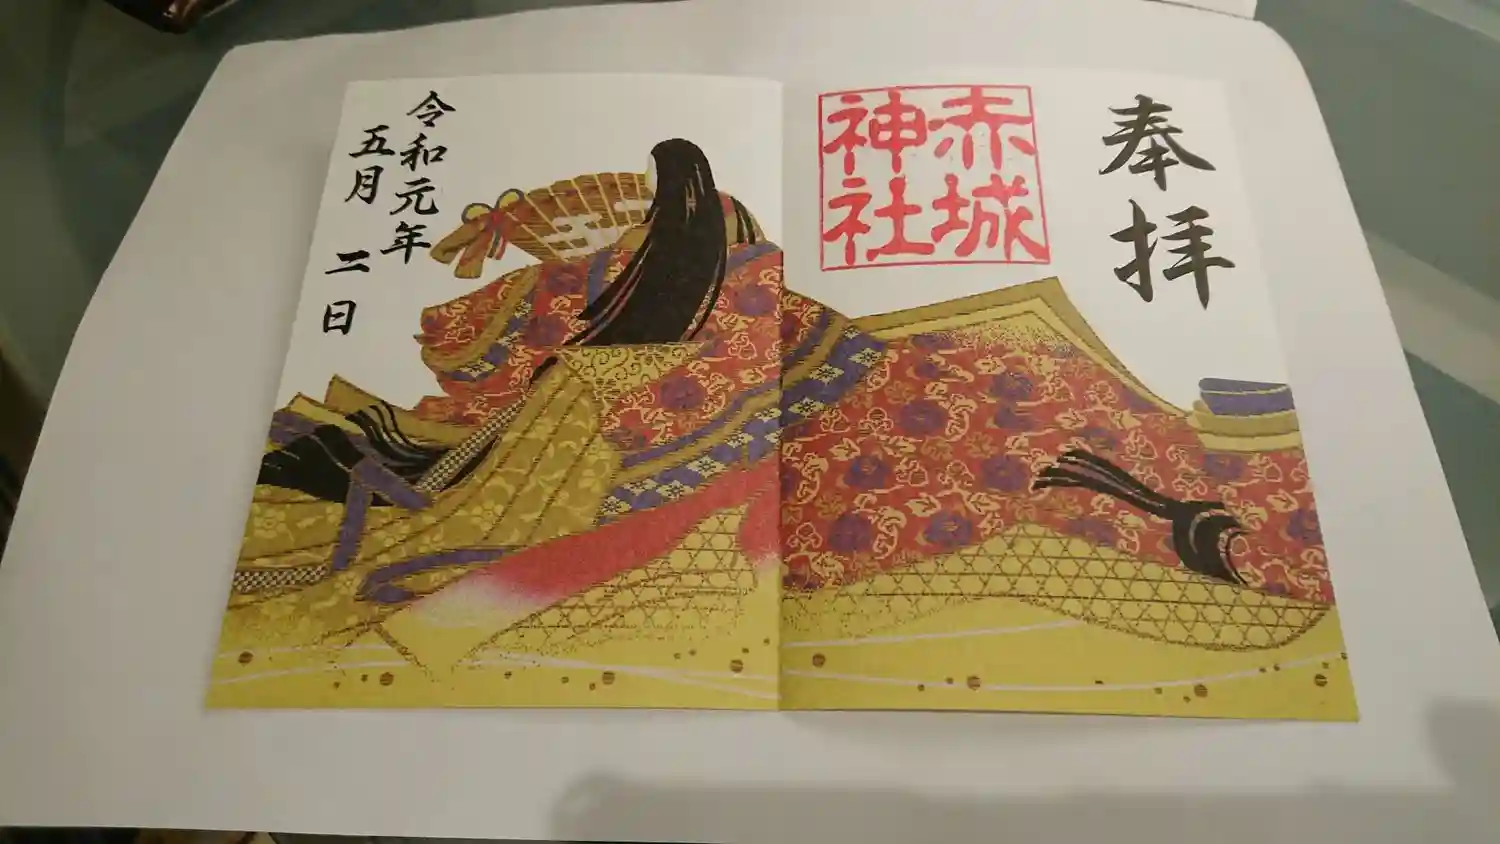 奉拝
赤城
神社
令和元年
五月二日